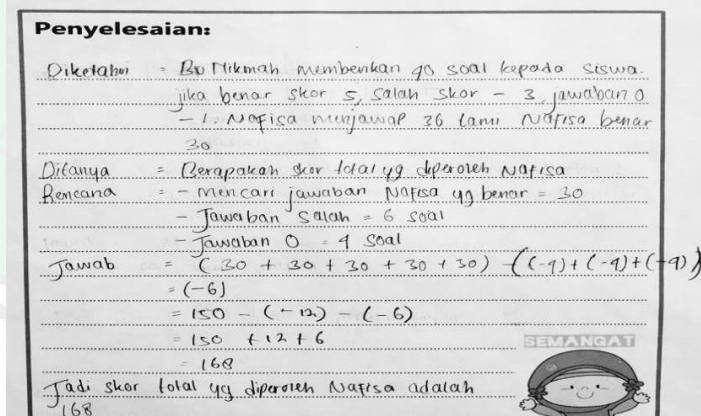 Penyelesaian:
Diketahui = Bu Hikmah memberikan 40 soal kepada siswa.
jika benar skor 5, salah skor - 3, jawaban 0
- 1. Nafisa menjawap 36 tami Nafisa benar
30
Ditanya = Berapakah skor total yg diperoleh Nafisa
Rencana = - Mencari jawaban Nafisa yg benar = 30
- Jawaban salah = 6 soal
- Jawaban 0 = 4 soal
Jawab = (30 + 30 + 30 + 30 + 30) - ((-4) + (-4) + (-4))
= (-6)
= 150 - (-12) - (-6)
= 150 + 12 + 6
= 168
SEMANGAT
Jadi skor total yg diperoleh Nafisa adalah
168